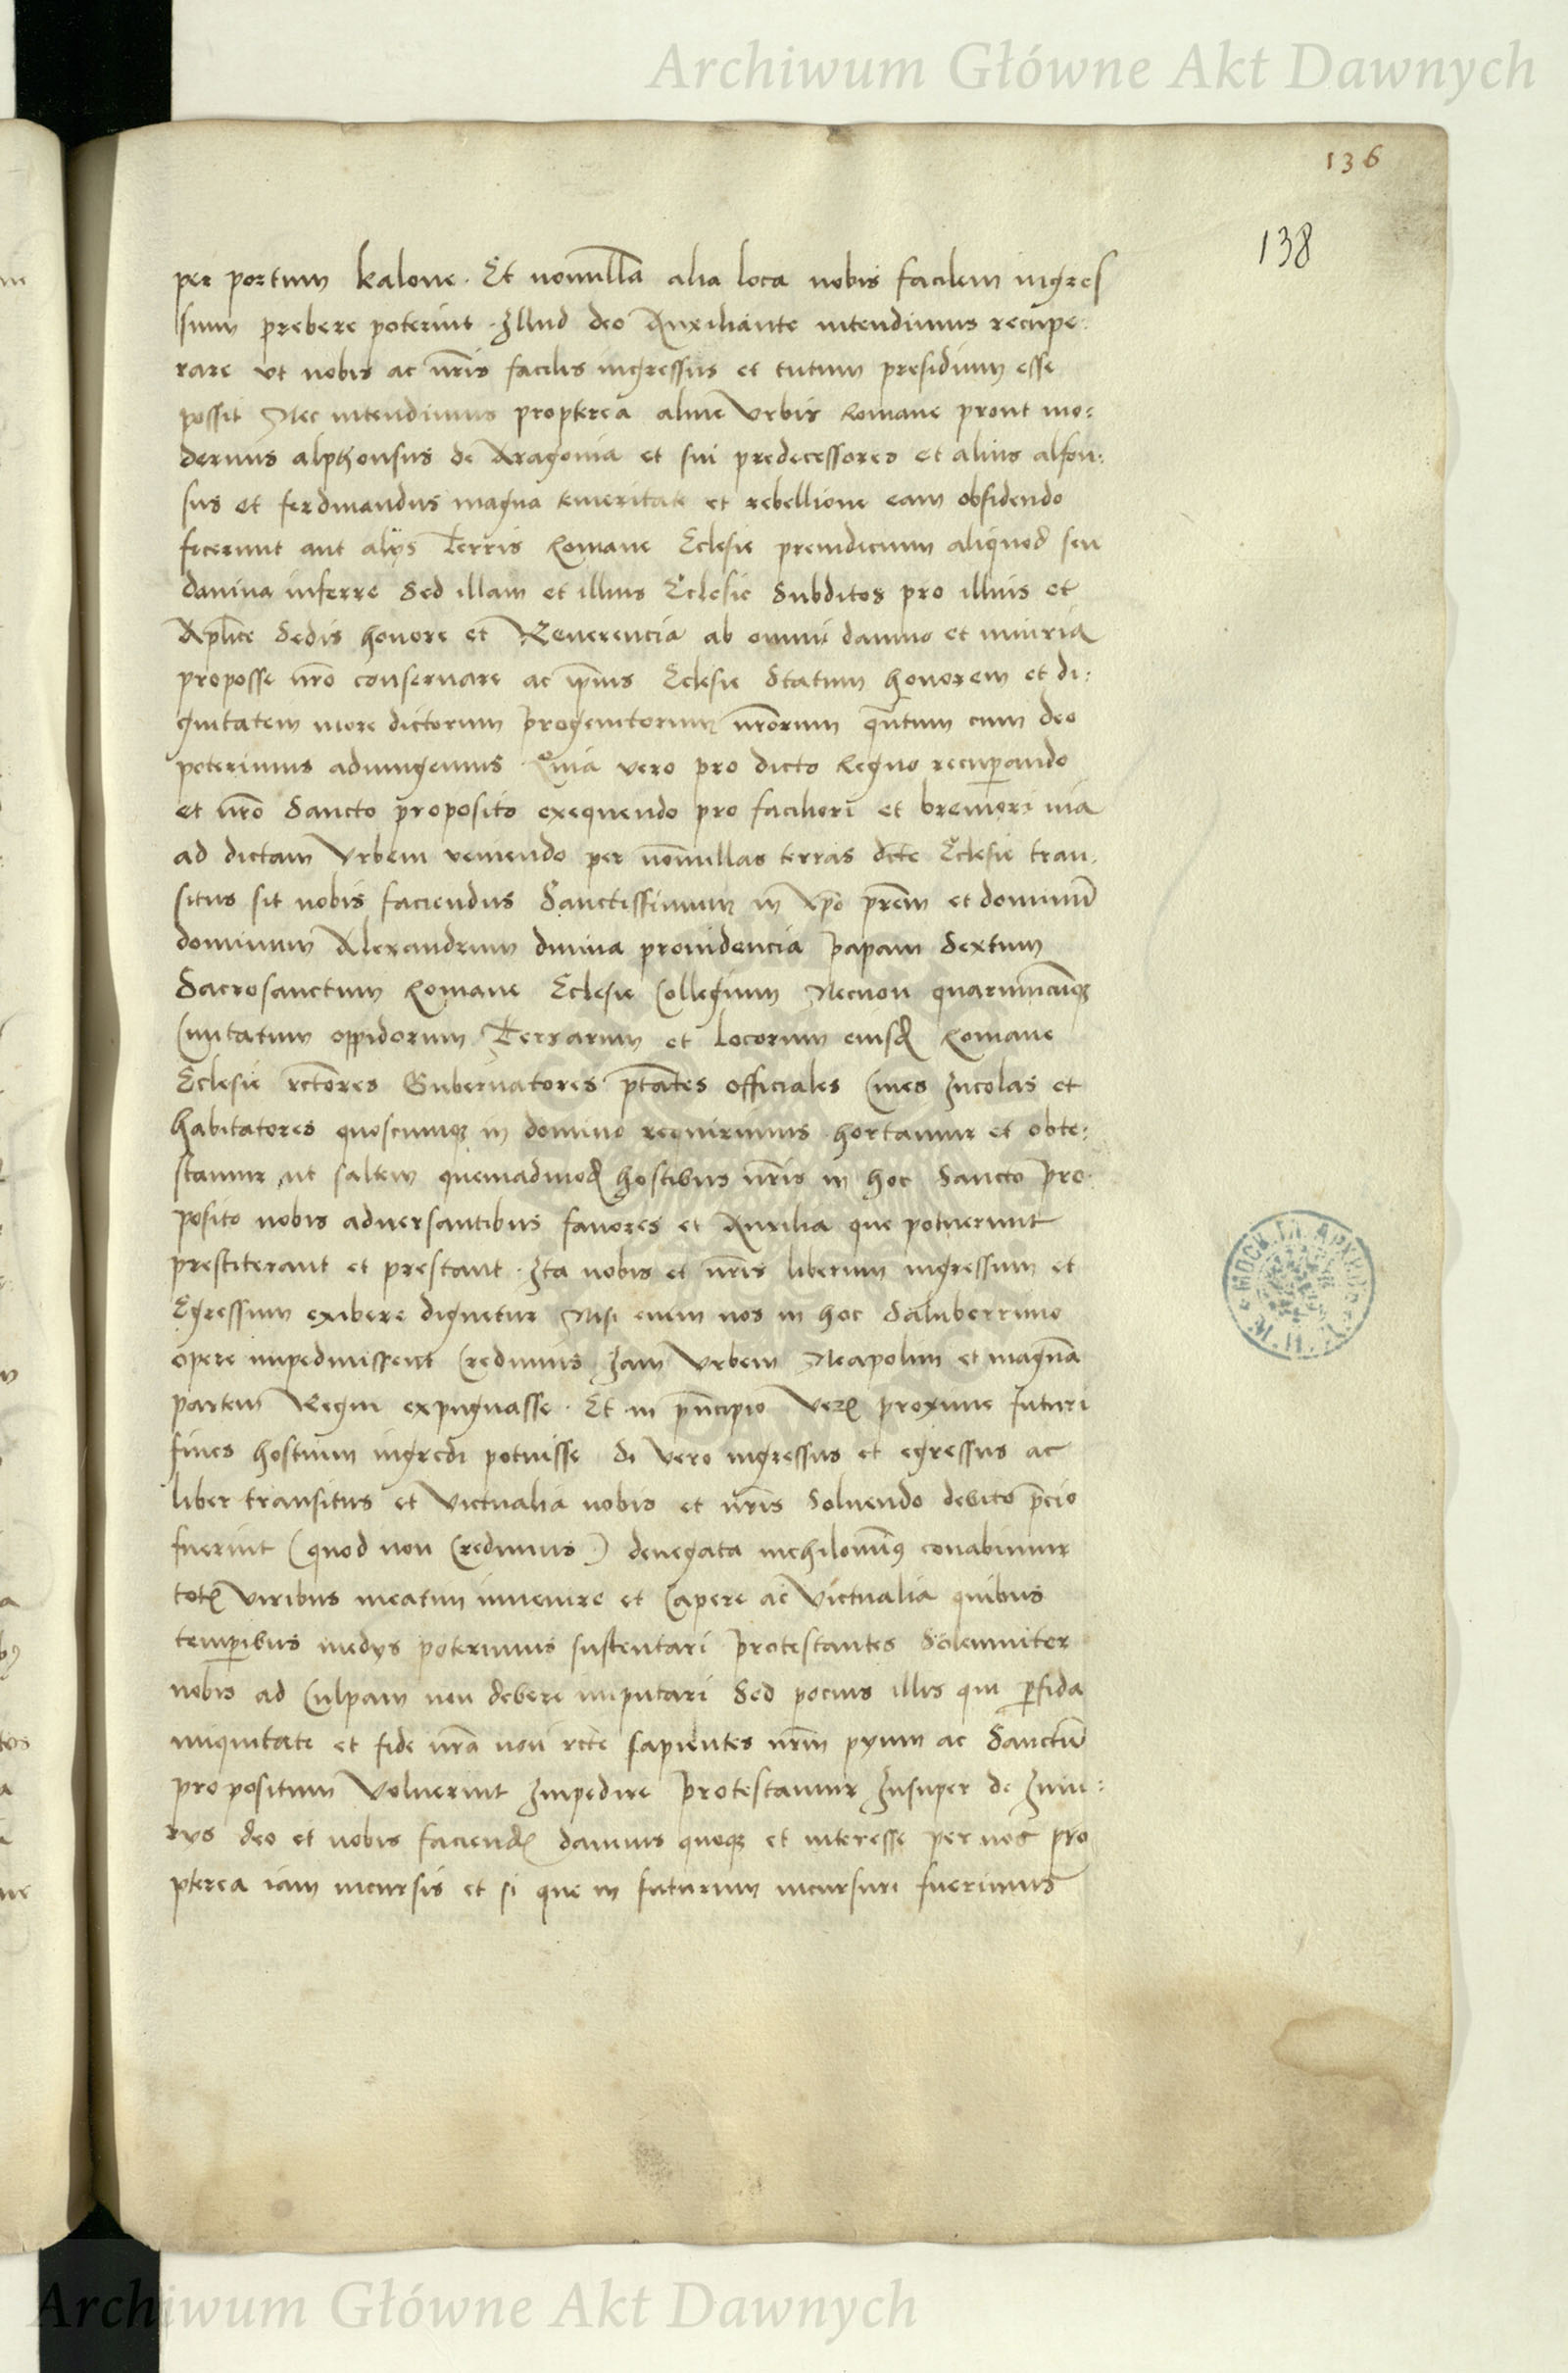 Archiwum Główne Akt Dawnych
136
138
per portum kalone. Et nonnulla alia loca nobis facilem ingres
sum prebere poterint. Illud deo Auxiliante intendimus recupe:
rare vt nobis ac nr̄is facilis ingressus et tutum presidium esse
possit Nec intendimus propterea alme Vrbis Romane prout mo:
dernus alphonsus de Aragonia et sui predecessores et alius alfon:
sus et ferdinandus magna temeritate et rebellione eam obsidendo
fecerunt aut alijs Terris Romane Eclesie preiudicium aliquod seu
damna inferre Sed illam et illius Eclesie Subditos pro illius et
Aplīce Sedis honore et Reuerencia ab omni damno et iniuria
proposse nr̄o conseruare ac ip̄ius Eclesie Statum honorem et di:
gnitatem more dictorum progenitorum nr̄orum qn̄tum cum deo
poterimus adiungemus Quia vero pro dicto Regno recup̄ando
et nr̄o Sancto proposito exequendo pro faciliori et breuiori via
ad dictam Vrbem veniendo per nonnullas terras dc̄te Eclesie tran:
situs sit nobis faciendus Sanctissimum in xp̄o pr̄em et dominū
dominum Alexandrum diuina prouidencia papam Sextum
Sacrosanctum Romane Eclesie Collegium Necnon quarumcūqȝ
Ciuitatum oppidorum Terrarum et locorum eiusd̄ Romane
Eclesie rc̄tores Gubernatores ptātes officiales Ciues Incolas et
habitatores quoscumqȝ in domino requirimus hortamur et obte:
stamur ut saltem quemadmod̄ hostibus nr̄is in hoc Sancto pro:
posito nobis aduersantibus fauores et Auxilia que potuerunt
prestiterant et prestant. Ita nobis et nr̄is liberum ingressum et
Egressum exibere dignetur Nisi enim nos in hoc Saluberrimo
opere impediuissent Credimus Iam Vrbem Neapolim et magnā
partem Regni expugnasse. Et in pn̄cipio Verꝭ proxime futuri
fines hostium ingredi potuisse Si vero ingressus et egressus ac
liber transitus et Victualia nobis et nr̄is Soluendo debito p̄cio
fuerint (quod non Credimus.) denegata nichilomīꝰ conabimur
totꝭ viribus meatum inuenire et Capere ac Victualia quibus
temp̄ibus medijs poterimus sustentari protestantes Solemniter
nobis ad Culpam non debere imputari Sed pocius illis qui p̄fida
iniquitate et fide nr̄a non rc̄te sapientes nr̄m pyum ac Sanctū
propositum Voluerint Impedire protestamur Insuper de Iniu:
rijs deo et nobis faciendꝭ damnis quoqȝ et interesse per nos pro
pterea iam incursis et si que in futurum incursuri fuerimus
Archiwum Główne Akt Dawnych